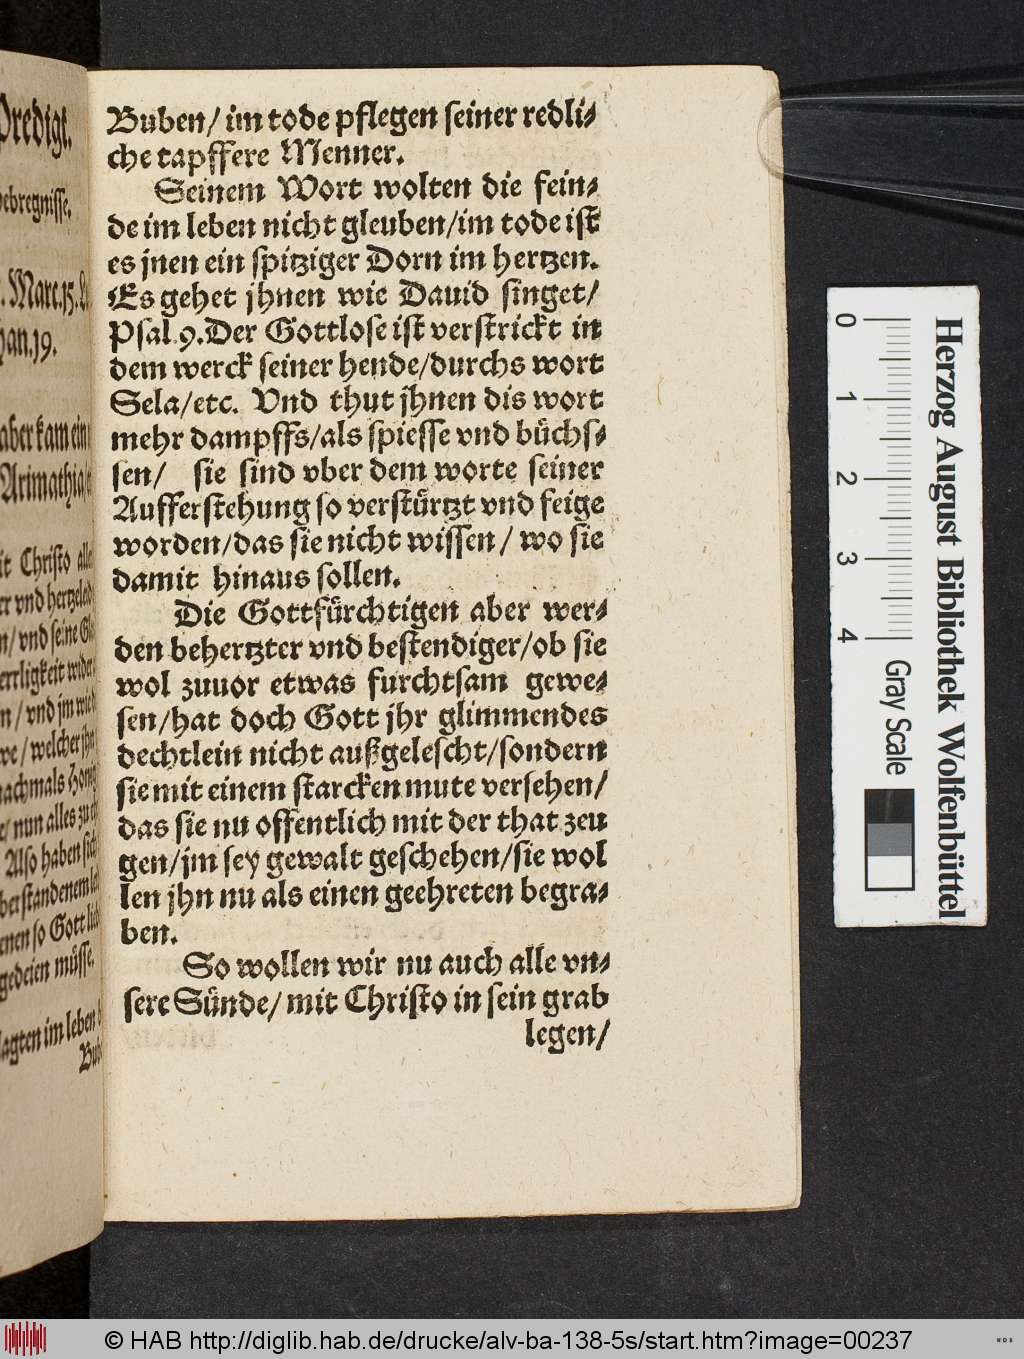 Predigt.
. Marc.15. L
han.19.
aber kam ein
Arimathia
it Christo alle
er vnd hertzeleid
n/ vnd seine
errligkeit wider
n/ vnd jm
we/ welcher jhn
nachmals
e/ nun alles zu
Also haben sich
berstandenem
enen so Gott
gedeien müsse.
agten im leben
Bube
Buben/ im tode pflegen seiner redli⸗
che tapffere Menner.
Seinem Wort wolten die fein⸗
de im leben nicht gleuben/im tode ist
es jnen ein spitziger Dorn im hertzen.
Es gehet jhnen wie Dauid singet/
Psal.9.Der Gottlose ist verstrickt in
dem werck seiner hende/durchs wort
Sela/etc. Vnd thut jhnen dis wort
mehr dampffs/als spiesse vnd büchs⸗
sen/ sie sind vber dem worte seiner
Aufferstehung so verstürtzt vnd feige
worden/das sie nicht wissen/ wo sie
damit hinaus sollen.
Die Gottfürchtigen aber wer⸗
den behertzter vnd bestendiger/ob sie
wol zuuor etwas furchtsam gewe⸗
sen/hat doch Gott jhr glimmendes
dechtlein nicht außgelescht/sondern
sie mit einem starcken mute versehen/
das sie nu offentlich mit der that zeu
gen/jm sey gewalt geschehen/sie wol
len jhn nu als einen geehreten begra⸗
ben.
So wollen wir nu auch alle vn⸗
sere Sünde/ mit Christo in sein grab
legen/
0 1 2 3 4
Gray Scale
Herzog August Bibliothek Wolfenbüttel
© HAB http://diglib.hab.de/drucke/alv-ba-138-5s/start.htm?image=00237